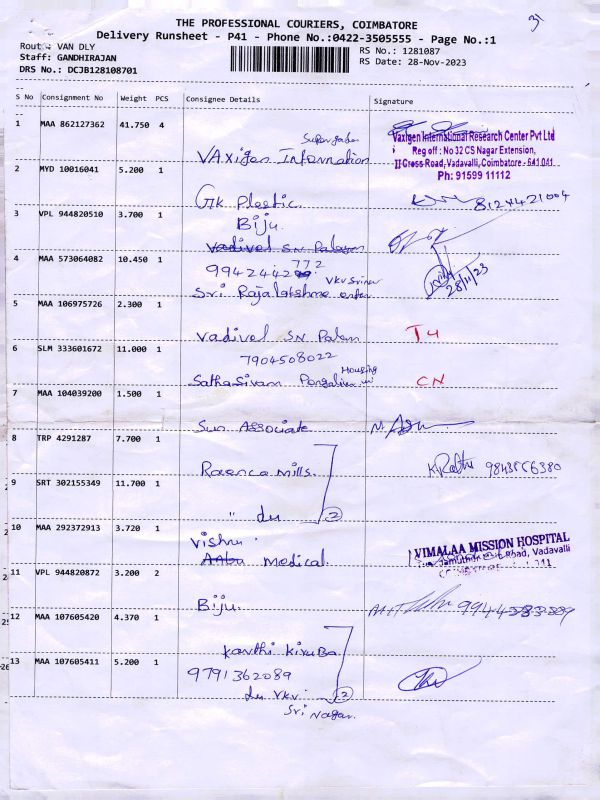 THE PROFESSIONAL COURIERS, COIMBATORE
31
Delivery Runsheet - P41 - Phone No.:0422-3505555 - Page No.:1
Route: VAN DLY
Staff: GANDHIRAJAN
DRS No.: DCJB128108701
RS No.: 1281087
RS Date: 28-Nov-2023
S No Consignment No Weight PCS Consignee Details Signature
1 MAA 862127362 41.750 4
VAxigen Information
Vaxigen International Research Center Pvt Ltd
Reg off : No 32 CS Nagar Extension,
II Cross Road, Vadavalli, Coimbatore - 641 041
Ph: 91599 11112
2 MYD 10016041 5.200 1
GK Plestic
8124421004
3 VPL 944820510 3.700 1
Biju
Vadivel S.N. Palayam
4 MAA 573064082 10.450 1
9942442 772
28/11/23
Sri Rajalakshme
5 MAA 106975726 2.300 1
Vadivel SN Palam
T4
6 SLM 333601672 11.000 1
7904508022
Housing
Sathasivam
CN
7 MAA 104039200 1.500 1
Sun Associate
8 TRP 4291287 7.700 1
Roenca Mills.
9843556380
9 SRT 302155349 11.700 1
" du 2
10 MAA 292372913 3.720 1
Vishnu
Medical
VIMALAA MISSION HOSPITAL
Road, Vadavalli
11 VPL 944820872 3.200 2
Biju
12 MAA 107605420 4.370 1
Kanthi Kiruba
13 MAA 107605411 5.200 1
9791362089
du VKV 2
Sri Nagar.